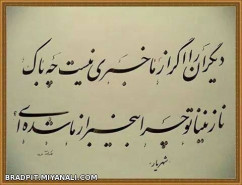 دیگران را اگر از ما خبری نیست چه باک
نازنینا تو چرا بی‌خبر از ما شده‌ای
شهریار
BRADPIT.MIYANALI.COM